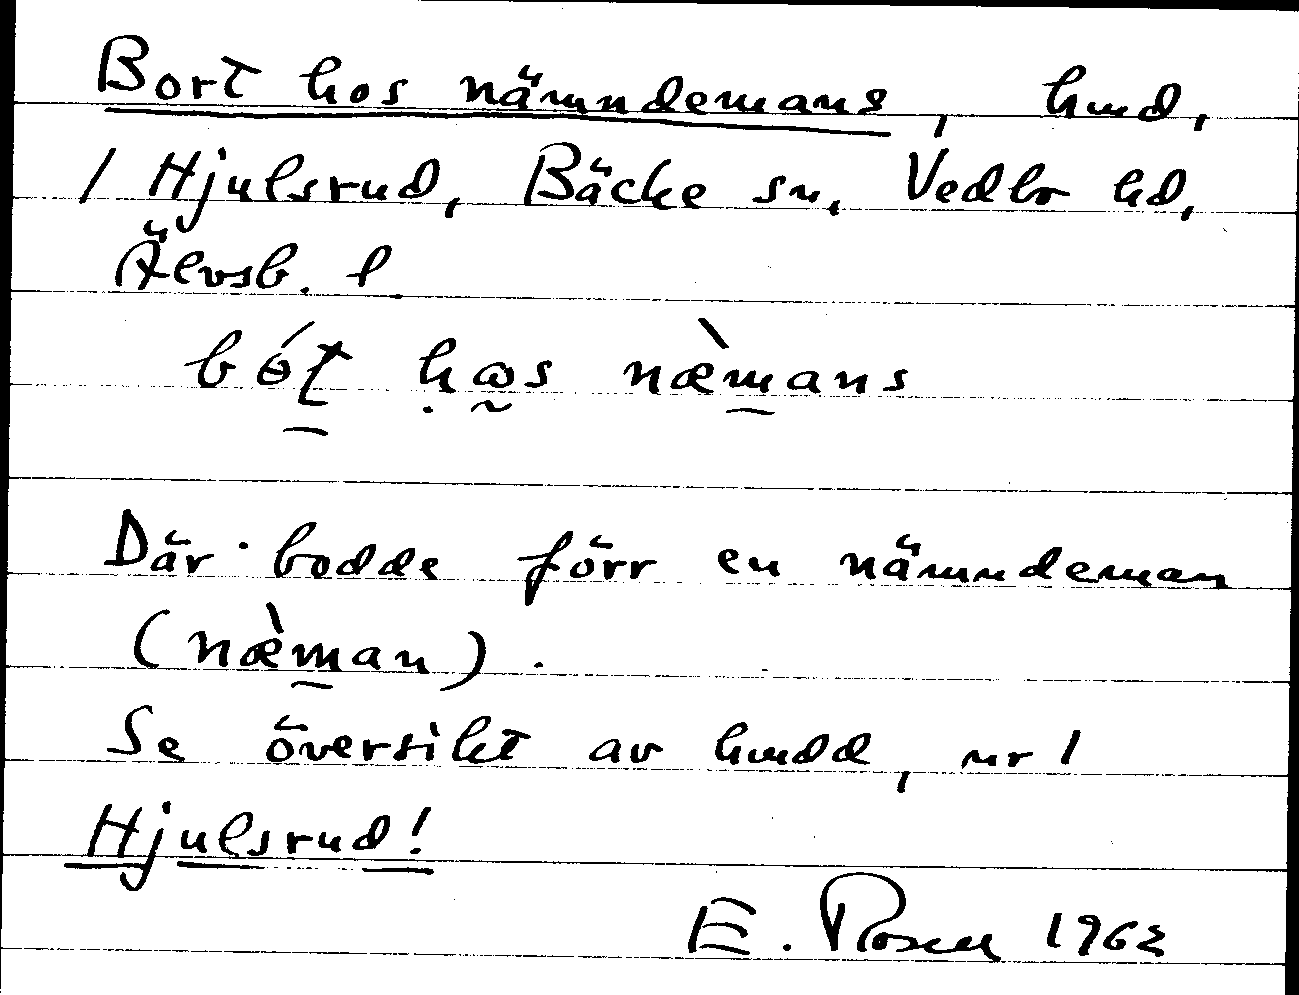 Bort hos nämndemans, hmd,
1 Hjulsrud, Bäcke sn, Vedbo hd,
Älvsb. l
bó̱t ḥɷs næ̀mans
Där bodde förr en nämndeman
(næ̀man).
Se översikt av hmdd, nr 1
Hjulsrud!
E. Rosen 1962